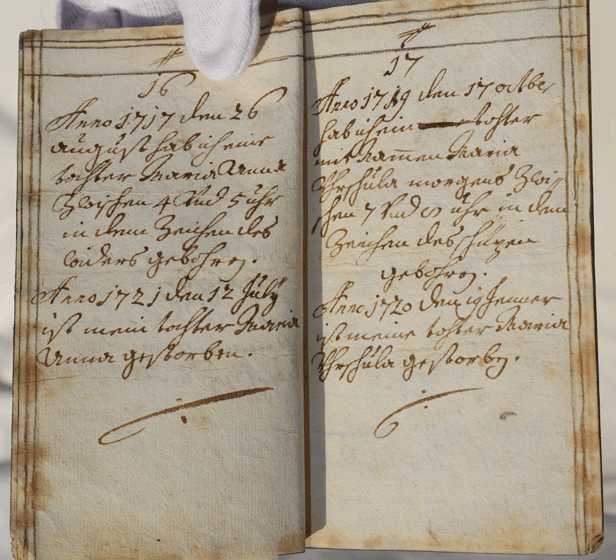 16
Anno 1717 den 26
august hab ich eine
tochter Maria Anna
Zwischen 4 Vnd 5 uhr
in dem Zeichen des
widers gebohren.
Anno 1721 den 12 July
ist mein tochter Maria
Anna gestorben.
17
Anno 1719 den 17 octber
hab ich ein tochter
mit Namen Maria
Vhrschula morgens Zwi
schen 7 Vnd 8 uhr in dem
Zeichen des schützen
gebohren.
Anno 1720 den 19 Jenner
ist meine tochter Maria
Vhrschula gestorben.